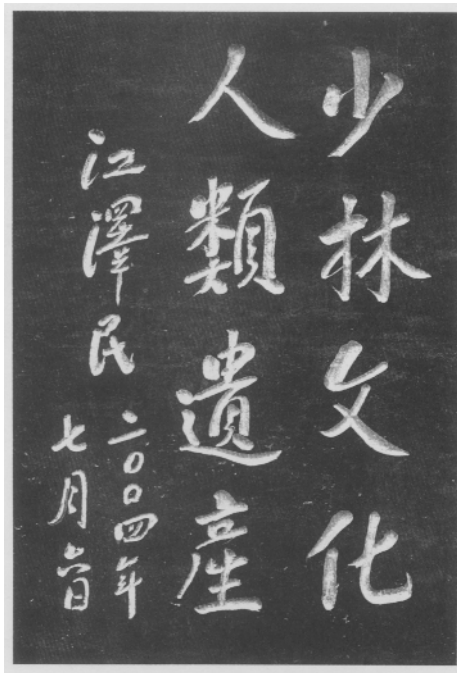 少林文化
人類遺產
江澤民
二〇〇四年
七月六日